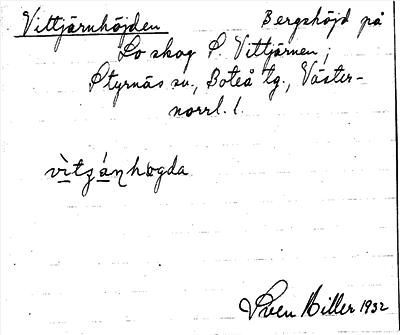 Vittjärnhöjden Bergshöjd på
Lo skog S. Vittjärnen,
Styrnäs sn., Boteå tg., Väster-
norrl. l.
vìtʒánhøgda
Sven Hiller 1932